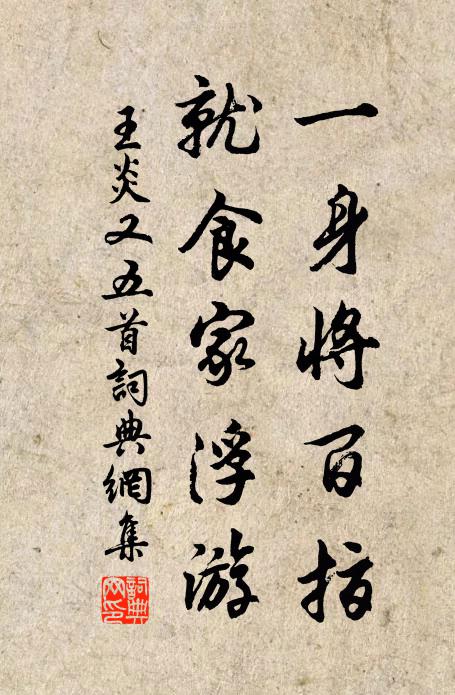 一身將百指
就食家浮游
王炎又五首詞典網集
詞典網印